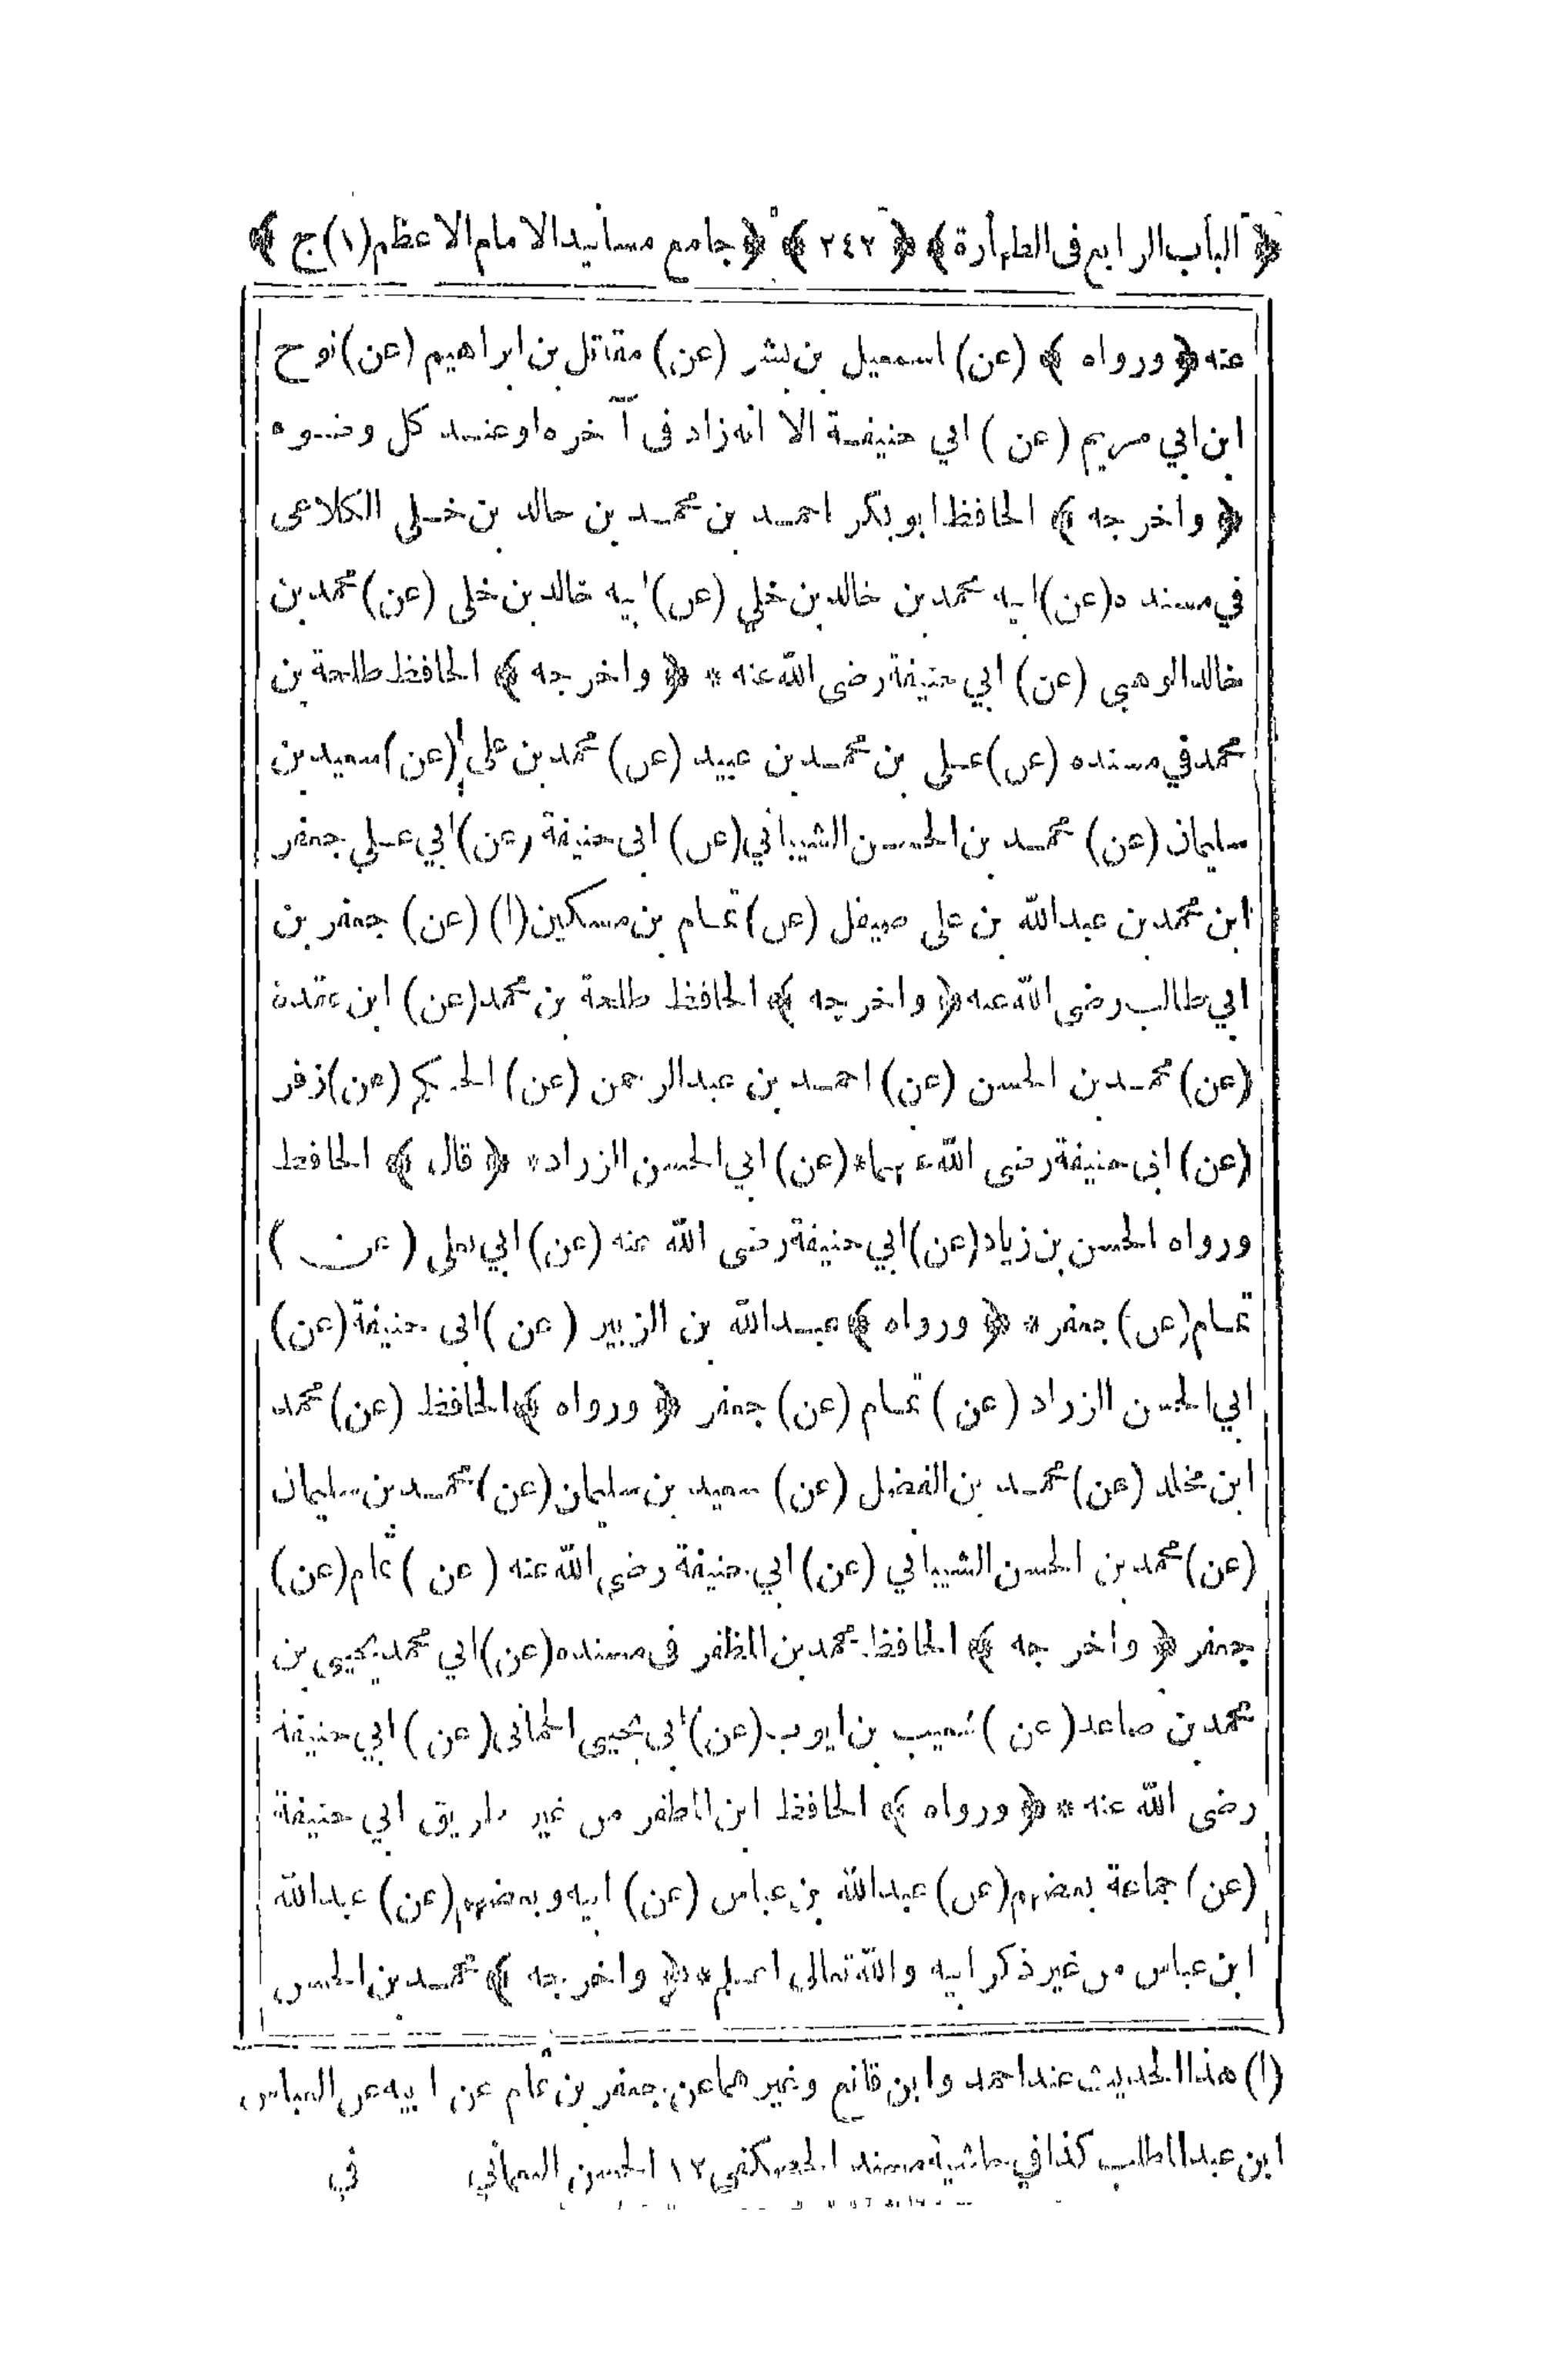 ﴿ الباب الرابع فى الطهارة ﴾ ﴿ ٢٤٢ ﴾ ﴿ جامع مسانيد الامام الاعظم (١) ج ﴾
عنه ﴿ ورواه ﴾ (عن) اسمعيل بن بشر (عن) مقاتل بن ابراهيم (عن) نوح
ابن ابي مريم (عن) ابي حنيفة الا انه زاد فى آخره او عند كل وضوء
﴿ واخرجه ﴾ الحافظ ابو بكر احمد بن محمد بن خالد بن خلى الكلاعى
في مسنده (عن) ابيه محمد بن خالد بن خلي (عن) ابيه خالد بن خلى (عن) محمد بن
خالد الوهبي (عن) ابي حنيفة رضى الله عنه * ﴿ واخرجه ﴾ الحافظ طلحة بن
محمد في مسنده (عن) على بن محمد بن عبيد (عن) محمد بن على (عن) سعيد بن
سليمان (عن) محمد بن الحسن الشيباني (عن) ابى حنيفة (عن) ابي علي جعفر
ابن محمد بن عبدالله بن علي صيقل (عن) تمام بن مسكين (١) (عن) جعفر بن
ابي طالب رضى الله عنه ﴿ واخرجه ﴾ الحافظ طلحة بن محمد (عن) ابن عقدة
(عن) محمد بن الحسن (عن) احمد بن عبدالرحمن (عن) الحكم (عن) زفر
(عن) ابى حنيفة رضى الله عنهما * (عن) ابي الحسن الزراد * ﴿ قال ﴾ الحافظ
ورواه الحسن بن زياد (عن) ابي حنيفة رضى الله عنه (عن) ابي يعلى (عن)
تمام (عن) جعفر * ﴿ ورواه ﴾ عبدالله بن الزبير (عن) ابى حنيفة (عن)
ابي الحسن الزراد (عن) تمام (عن) جعفر ﴿ ورواه ﴾ الحافظ (عن) محمد
ابن مخلد (عن) محمد بن الفضل (عن) سعيد بن سليمان (عن) محمد بن سليمان
(عن) محمد بن الحسن الشيباني (عن) ابي حنيفة رضي الله عنه (عن) تمام (عن)
جعفر ﴿ واخرجه ﴾ الحافظ محمد بن المظفر فى مسنده (عن) ابي محمد يحيى بن
محمد بن صاعد (عن) شعيب بن ايوب (عن) ابى يحيى الحمانى (عن) ابي حنيفة
رضى الله عنه * ﴿ ورواه ﴾ الحافظ ابن المظفر من غير طريق ابي حنيفة
(عن) جماعة بعضهم (عن) عبدالله بن عباس (عن) ابيه وبعضهم (عن) عبدالله
ابن عباس من غير ذكر ابيه والله تعالى اعلم * ﴿ واخرجه ﴾ محمد بن الحسن
(١) هذا الحديث عند احمد وابن قانع وغيرهما عن جعفر بن تمام عن ابيه عن العباس
ابن عبدالمطلب كذا في حاشية مسند الحصكفى ١٢ الحسن النعماني في